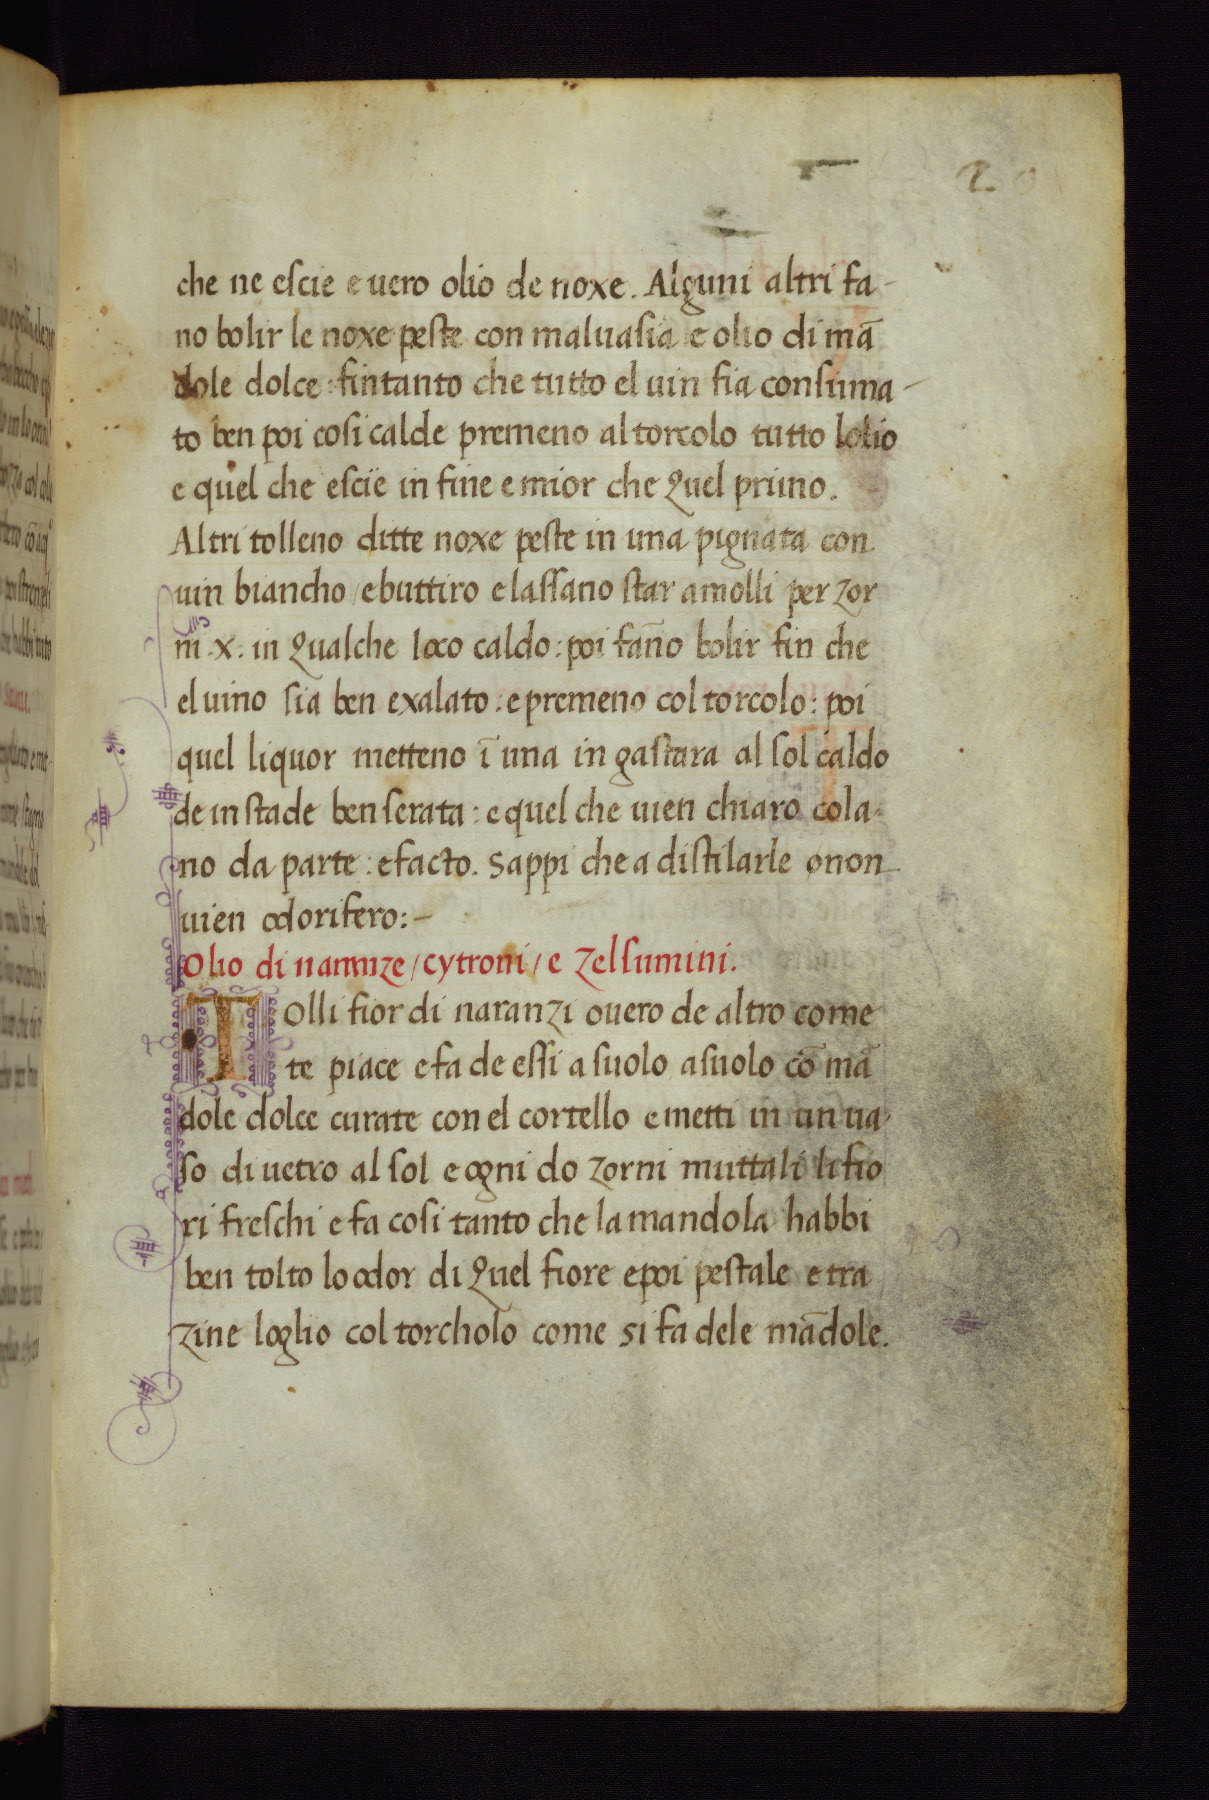 20
che ne escie e uero olio de noxe. Alguni altri fa-
no bolir le noxe peste con maluasia e olio di mā
dole dolce : fintanto che tutto el uin fia consuma-
to ben poi cosi calde premeno al torcolo tutto lolio
e quel che escie in fine e mior che quel primo.
Altri tolleno ditte noxe peste in una pignata con
uin biancho / e buttiro e lassano star a molli per zor
ni .x. in qualche loco caldo : poi fan̄o bolir fin che
el uino sia ben exalato : e premeno col torcolo : poi
quel liquor metteno ī una ingastara al sol caldo
de instade ben serata : e quel che uien chiaro cola-
no da parte : e facto. Sappi che a distilarle o non
uien odorifero : –
Olio di naranze / cytroni / e zelsumini.
Tolli fior di naranzi ouero de altro come
te piace e fa de essi a suolo a suolo cō mā
dole dolce curate con el cortello e metti in un ua-
so di uetro al sol e ogni do zorni muttali li fio
ri freschi e fa cosi tanto che la mandola habbi
ben tolto lo odor di quel fiore e poi pestale e tra
zine loglio col torcholo come si fa dele mādole.